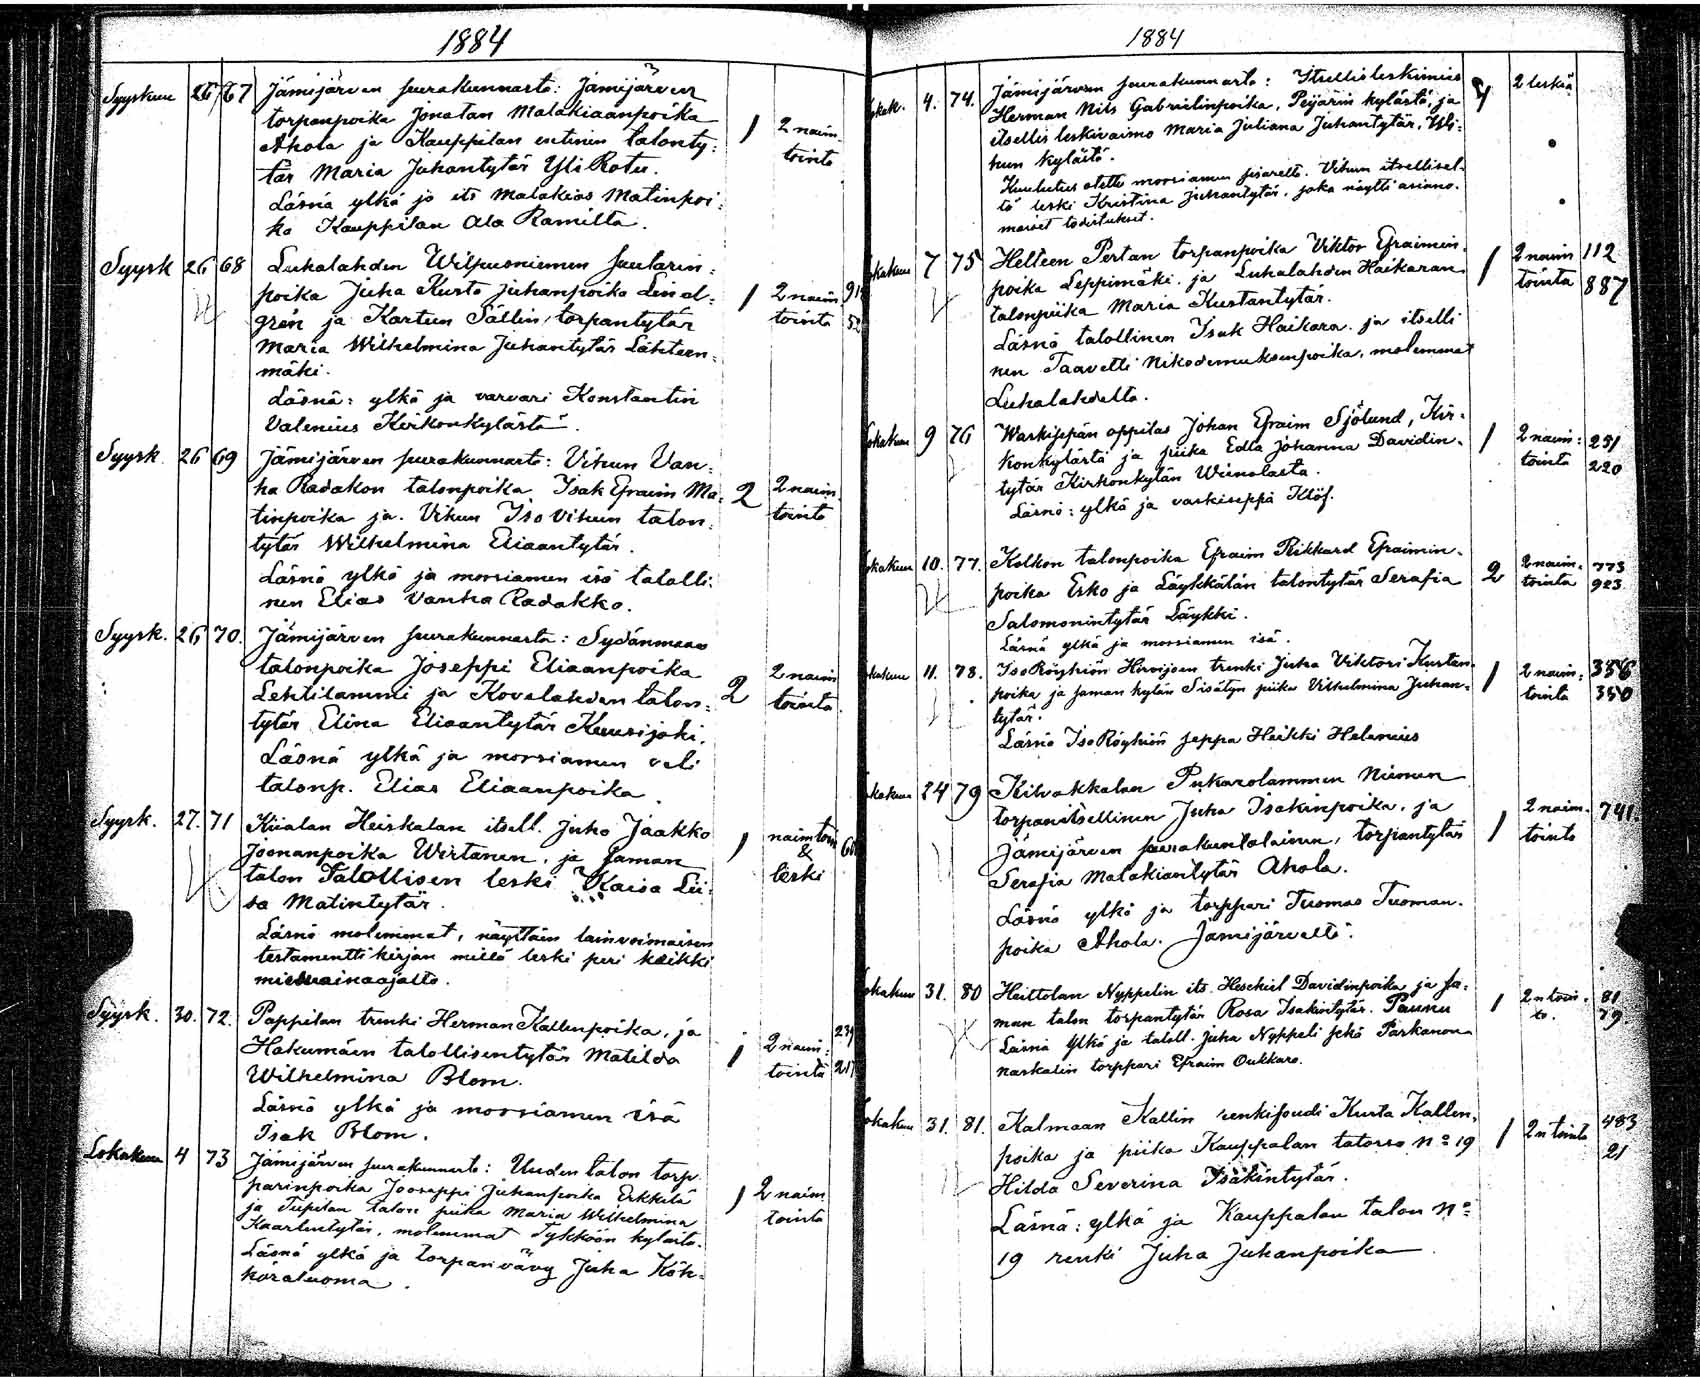 1884
Syyskuu 26 67 Jämijärven seurakunnasta: Jämijärven
torpanpoika Jonatan Malakiaanpoika
Ahola ja Kauppilan entinen talonty- 1 2 naim.
tär Maria Juhantytär Yli Rotu. tointa
Läsnä ylkä ja its Malakias Matinpoi-
ka Kauppilan Ala Ramilta.
Syysk 26 68 Luhalahden Wilpusniemen
poika Juha Kusta Juhanpoika Lind- 1 2 naim
grén ja Kartun Sällin torpantytär tointa
Maria Wilhelmina Juhantytär Lähteen-
mäki.
Läsnä: ylkä ja varvari Konstantin
Valenius Kirkonkylästä.
Syysk 26 69 Jämijärven seurakunnasta: Vihun Van-
ha Radakon talonpoika Isak Efraim Ma- 2 2 naim.
tinpoika ja Vihun Iso Vihun talon- tointa
tytär Wilhelmina Eliaantytär.
Läsnä ylkä ja morsiamen isä talolli-
nen Elias Vanha Radakko.
Syysk. 26 70. Jämijärven seurakunnasta: Sydänmaan
talonpoika Joseppi Eliaanpoika 2 naim
Lehtilammi ja Kovelahden talon- 2 tointa.
tytär Elina Eliaantytär Kuusijoki.
Läsnä ylkä ja morsiamen veli
talonp. Elias Eliaanpoika.
Syysk. 27. 71 Kiialan Heiskalan itsell. Juho Jaakko
Joonanpoika Wirtanen, ja saman 1 naimtoin &
talon Talollisen leski Kaisa Lii- leski
sa Matintytär.
Läsnä molemmat, näyttäin lainvoimaisen
testamenttikirjan millä leski peri kaikki
miesvainaajalta.
Syysk. 30. 72. Pappilan trenki Herman Kallenpoika, ja 239
Hakumäen talollisentytär Matilda 1 2 naim:
Wilhelmina Blom. tointa 217
Läsnä ylkä ja morsiamen isä
Isak Blom.
Lokakuu 4 73 Jämijärven seurakunnasta: Uuden talon torp
parinpoika Jooseppi Juhanpoika Erkkilä 1 2 naim
ja Tupilan talon piika Maria Wilhelmina tointa
Kaarluntytär, molemmat Tykköön kylästä.
Läsnä ylkä ja torpan vävy Juha Köh-
köraluoma.
1884
Lokak. 4. 74. Jämijärven seurakunnasta: Itsellisleskimies 2 leskiä
Herman Nils Gabrielinpoika, Peijarin kylästä, ja
itsellis leskivaimo Maria Juliana Juhantytär, Vi-
hun kylästä.
Kuulutus otettu morsiamen sisarelta. Vihun itsellisel-
tä leski Kristina Juhantytär, joka näytti asiano-
maiset todistukset.
Lokakuu 7 75 Helteen Pertan torpanpoika Viktor Efraimin- 1 2 naim 112
poika Leppimäki, ja Luhalahden Haikaran tointa 887
talonpiika Maria Kustantytär.
Läsnä talollinen Isak Haikara ja itselli
nen Taavetti Nikodemuksenpoika, molemmat
Luhalahdelta.
Lokakuu 9 76 Waskisepän oppilas Johan Efraim Sjölund, Kir- 1 2 naim: 251
konkylästä ja piika Edla Johanna Davidin- tointa 220
tytär Kirkonkylän Weinolasta.
Läsnä: ylkä ja vaskiseppä Klöf.
Lokakuu 10. 77. Kelkon talonpoika Efraim Rikkard Efraimin- 2 2 naim. 773
poika Esko ja Läykkälän talontytär Serafia tointa 923
Salomonintytär Läykki.
Läsnä ylkä ja morsiamen isä.
Lokakuu 11. 78. Iso Röyhiön Hirvijoen trenki Juha Viktori Kustan- 1 2 naim: 356
poika ja saman kylän Sisätyn piika Vilhelmina Juhan- tointa 350
tytär.
Läsnä Iso Röyhiön seppä Heikki Helenius
Lokakuu 24 79 Kilvakkalan Pukarolammen Niemen
torpanitsellinen Juha Isakinpoika, ja 1 2 naim. 741.
Jämijärven seurakuntalainen, torpantytär tointa
Serafia Malakiantytär Ahola.
Läsnä ylkä ja torppari Tuomas Tuoman-
poika Ahola. Jämijärveltä.
Lokakuu 31. 80 Heittolan Nyppelin its. Heskiel Davidinpoika ja sa- 1 2 n toin. 81
man talon torpantytär Rosa Isakintytär Paunu to. 79.
Läsnä Ylkä ja taloll. Juha Nyppeli sekä Parkanon
Naskalin torppari Efraim Oukkaro.
Lokakuu 31. 81. Kalmaan Kallin renkisoudi Kusta Kallen- 483
poika ja piika Kauppalan talossa No 19 1 2 n tointa 21
Hilda Severina Isakintytär.
Läsnä: ylkä ja Kauppalan talon No
19 renki Juha Juhanpoika.